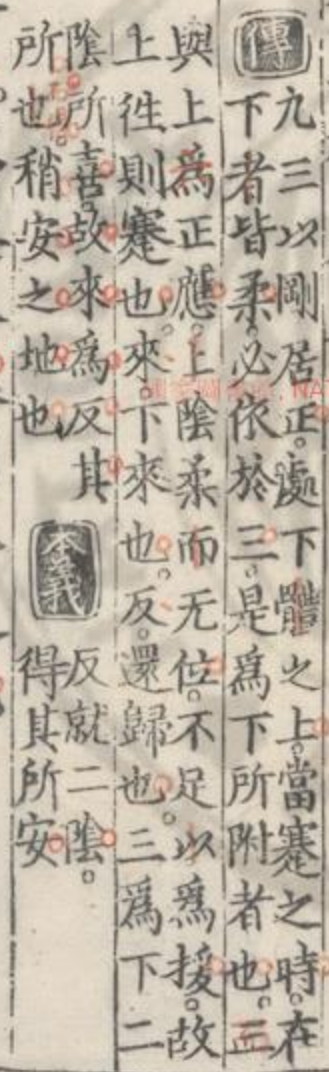 傳
九三以剛居正。處下體之上。當蹇之時。在
下者皆柔。必依於三。是爲下所附者也。三
與上爲正應。上陰柔而无位。不足以爲援。故
上徃則蹇也。來。下來也。反。還歸也。三爲下二
陰所喜。故來爲反其
所也。稍安之地也
本義
反就二陰。
得其所安